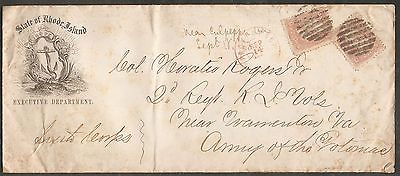 State of Rhode Island
EXECUTIVE DEPARTMENT.
near Culpepper
Sept
Col. Horatio Rogers Jr
2d Regt R I Vols
Near Warrenton Va
Army of the Potomac
Sixth Corps